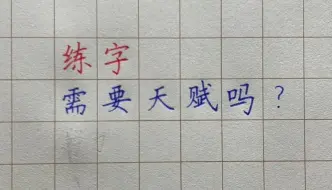 练字
需要天赋吗？